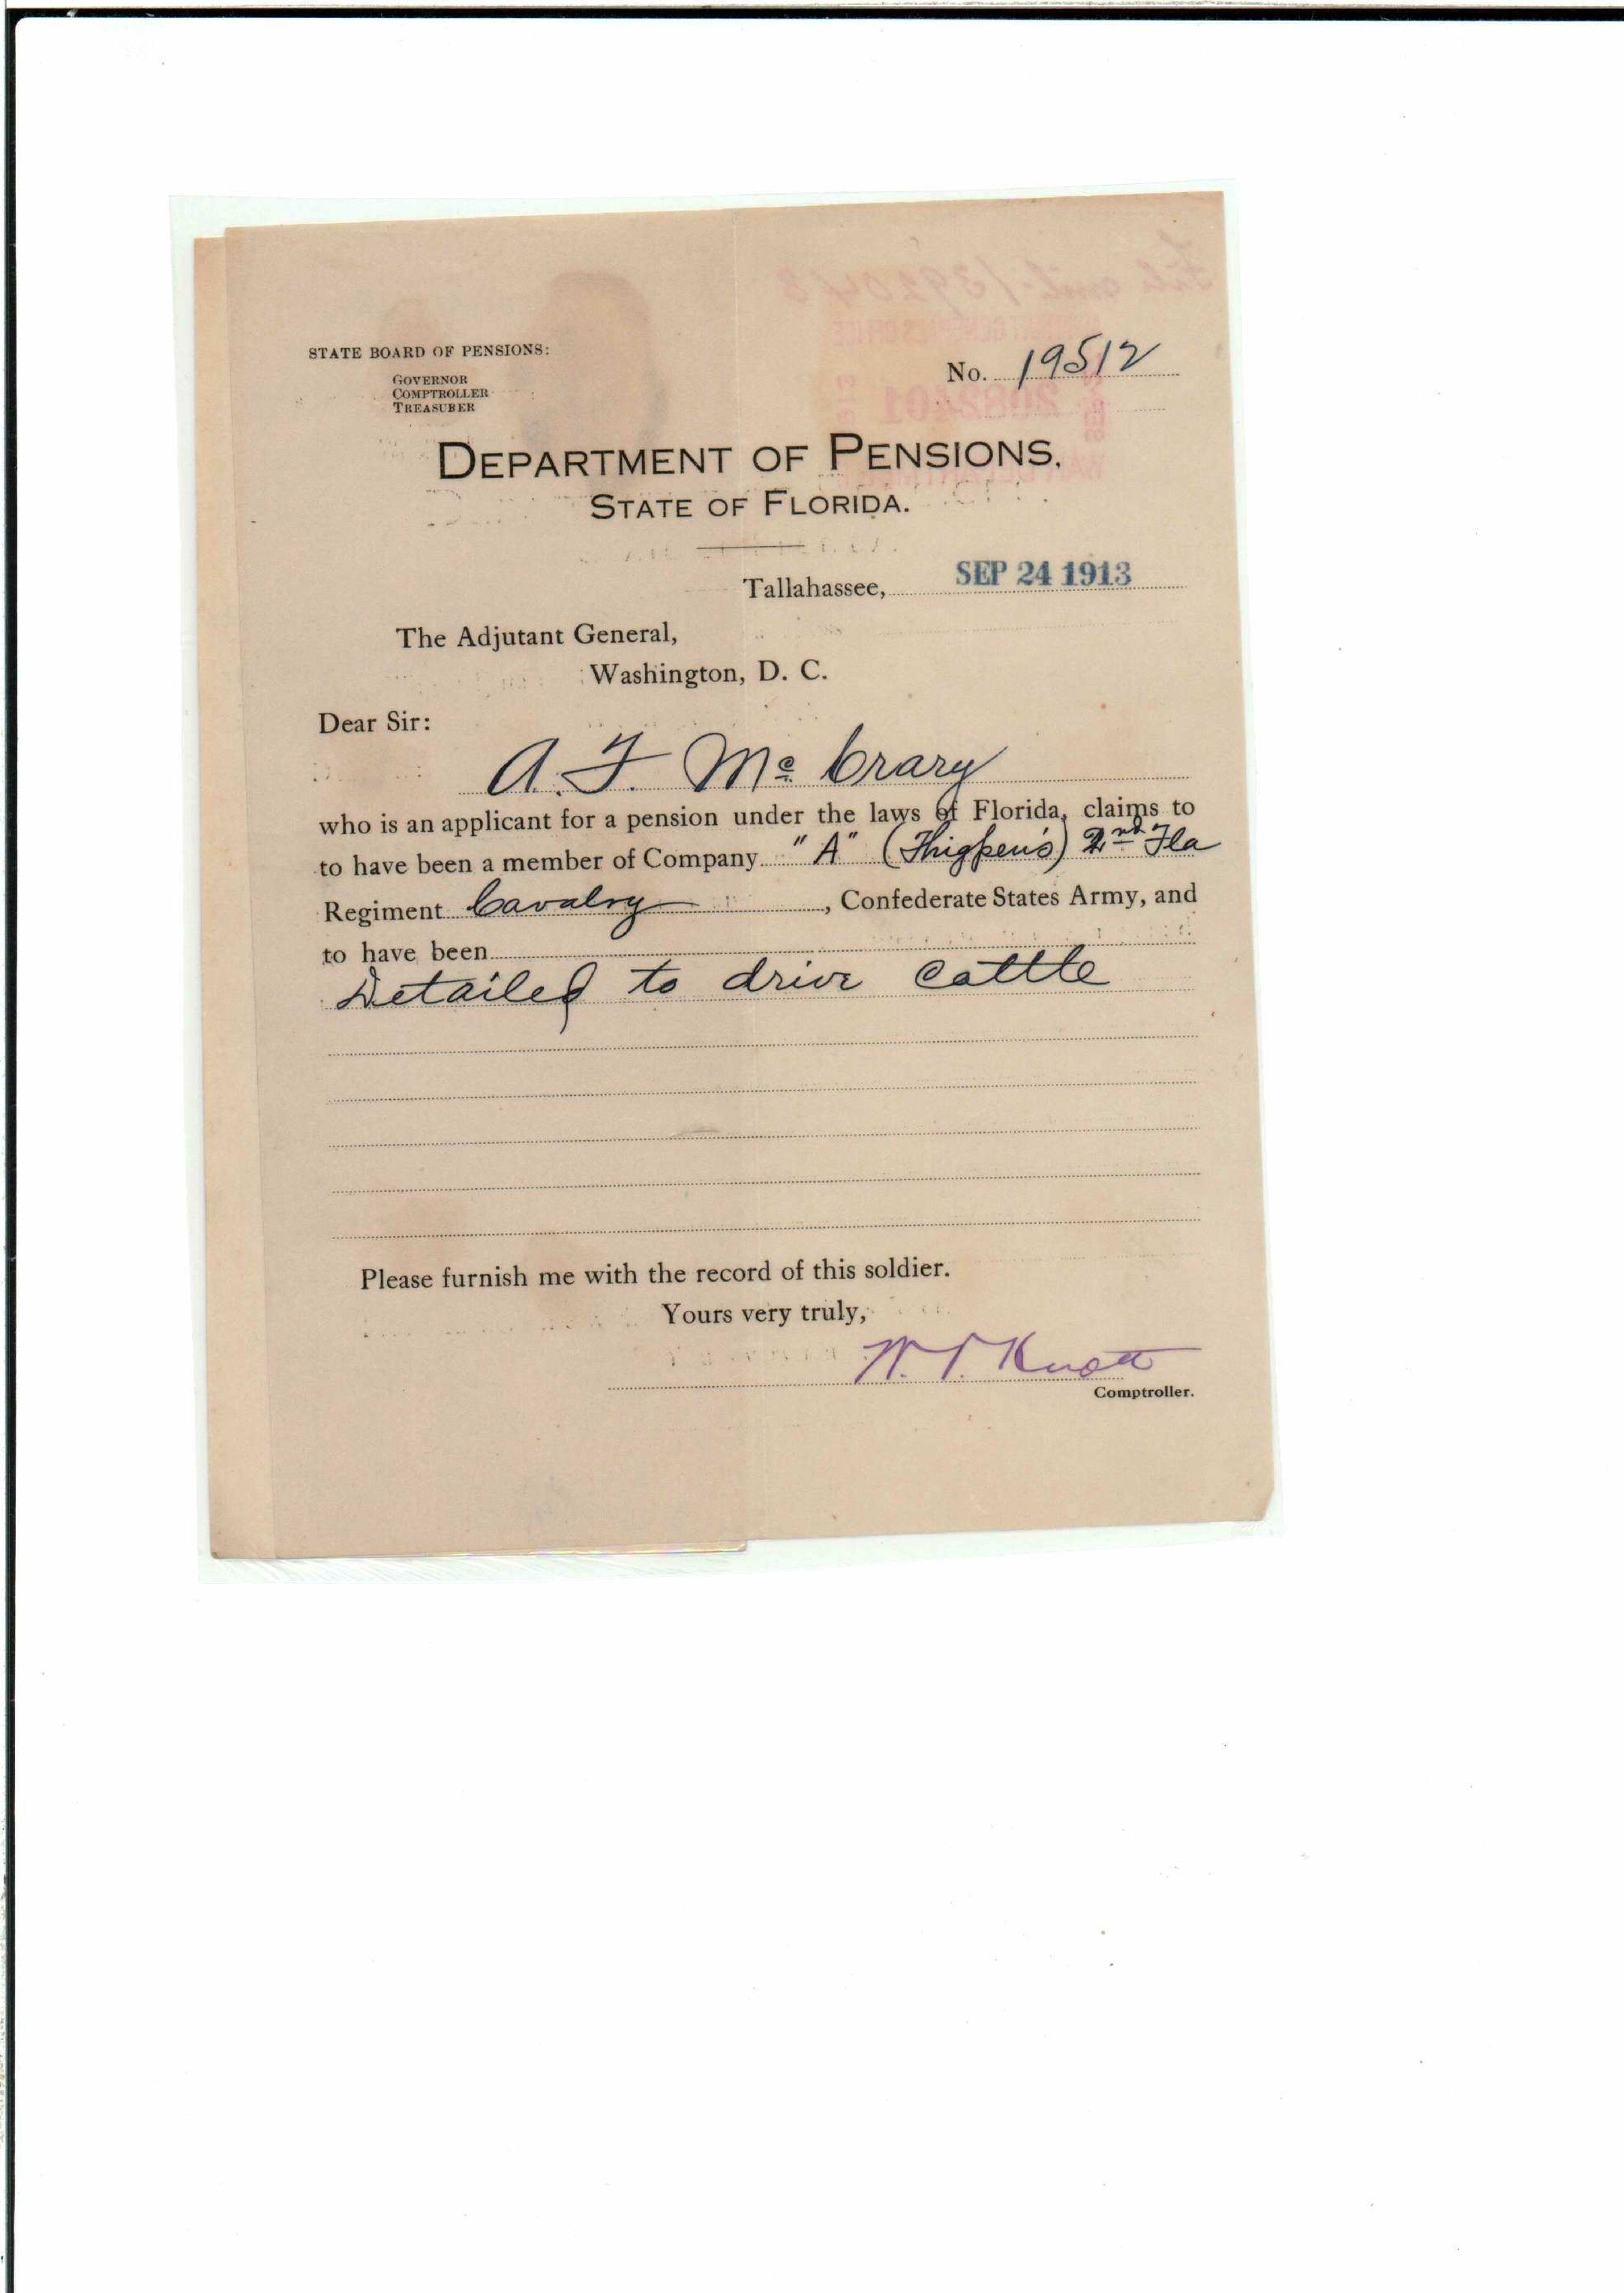 STATE BOARD OF PENSIONS:
GOVERNOR
COMPTROLLER
TREASURER
No. 19512
DEPARTMENT OF PENSIONS,
STATE OF FLORIDA.
Tallahassee, SEP 24 1913
The Adjutant General,
Washington, D. C.
Dear Sir:
A. F. Mc Crary
who is an applicant for a pension under the laws of Florida, claims to
to have been a member of Company "A" (Thigpen's) 2nd Fla
Regiment Cavalry, Confederate States Army, and
to have been
Detailed to drive cattle
Please furnish me with the record of this soldier.
Yours very truly,
W. V. Knott
Comptroller.